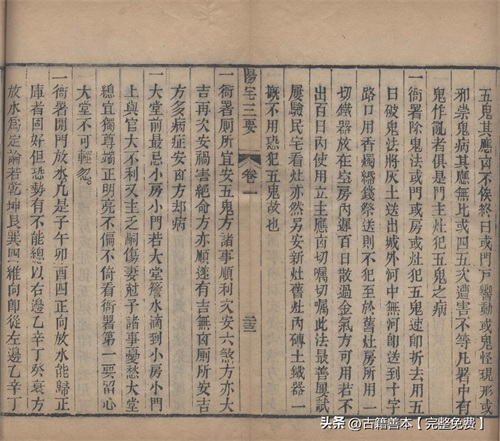 五鬼其應啚不俟終日或門戶響動或妖怪現形或
邪祟鬼病其應無比或四五次遭害不等凡署中有
鬼作亂者俱是門主灶犯五鬼之病
一衙署除鬼法或門或房或灶犯五鬼速即折去用五
日破鬼法將灰土送出城外河中無河即送到十字
路口用香燭楮錢祭送則不犯至於舊灶房所用一
切鐵器放在空房內遲百日散過金氣方可用若不
出百日內使用立主應啚切囑切囑此法最善屢試
屢驗民宅看灶亦然另安新灶舊灶內磚土鐵器一
概不用恐犯五鬼故也
陽宅三要 卷一 三三
一衙署厠所宜安五鬼方諸事順利次安六煞方亦大
吉再次安禍害絕命方亦順遂有吉無啚厠所安吉
方多病症安啚方却病
一大堂前最忌小房小門若大堂簷水滴到小房小門
上與官大不利又主乏嗣傷妻尅子諸事憂愁大堂
總宜獨尊端正明亮不偏不倚看衙署第一要留心
大堂不可輕忽
一衙署開門放水凡是子午卯酉四正向放水能歸正
庫者固好但恐勢有不能總以右邊乙辛丁癸衰方
放水爲定論若乾坤艮巽四維向即從左邊乙辛丁
头条@古籍善本【完整免费】